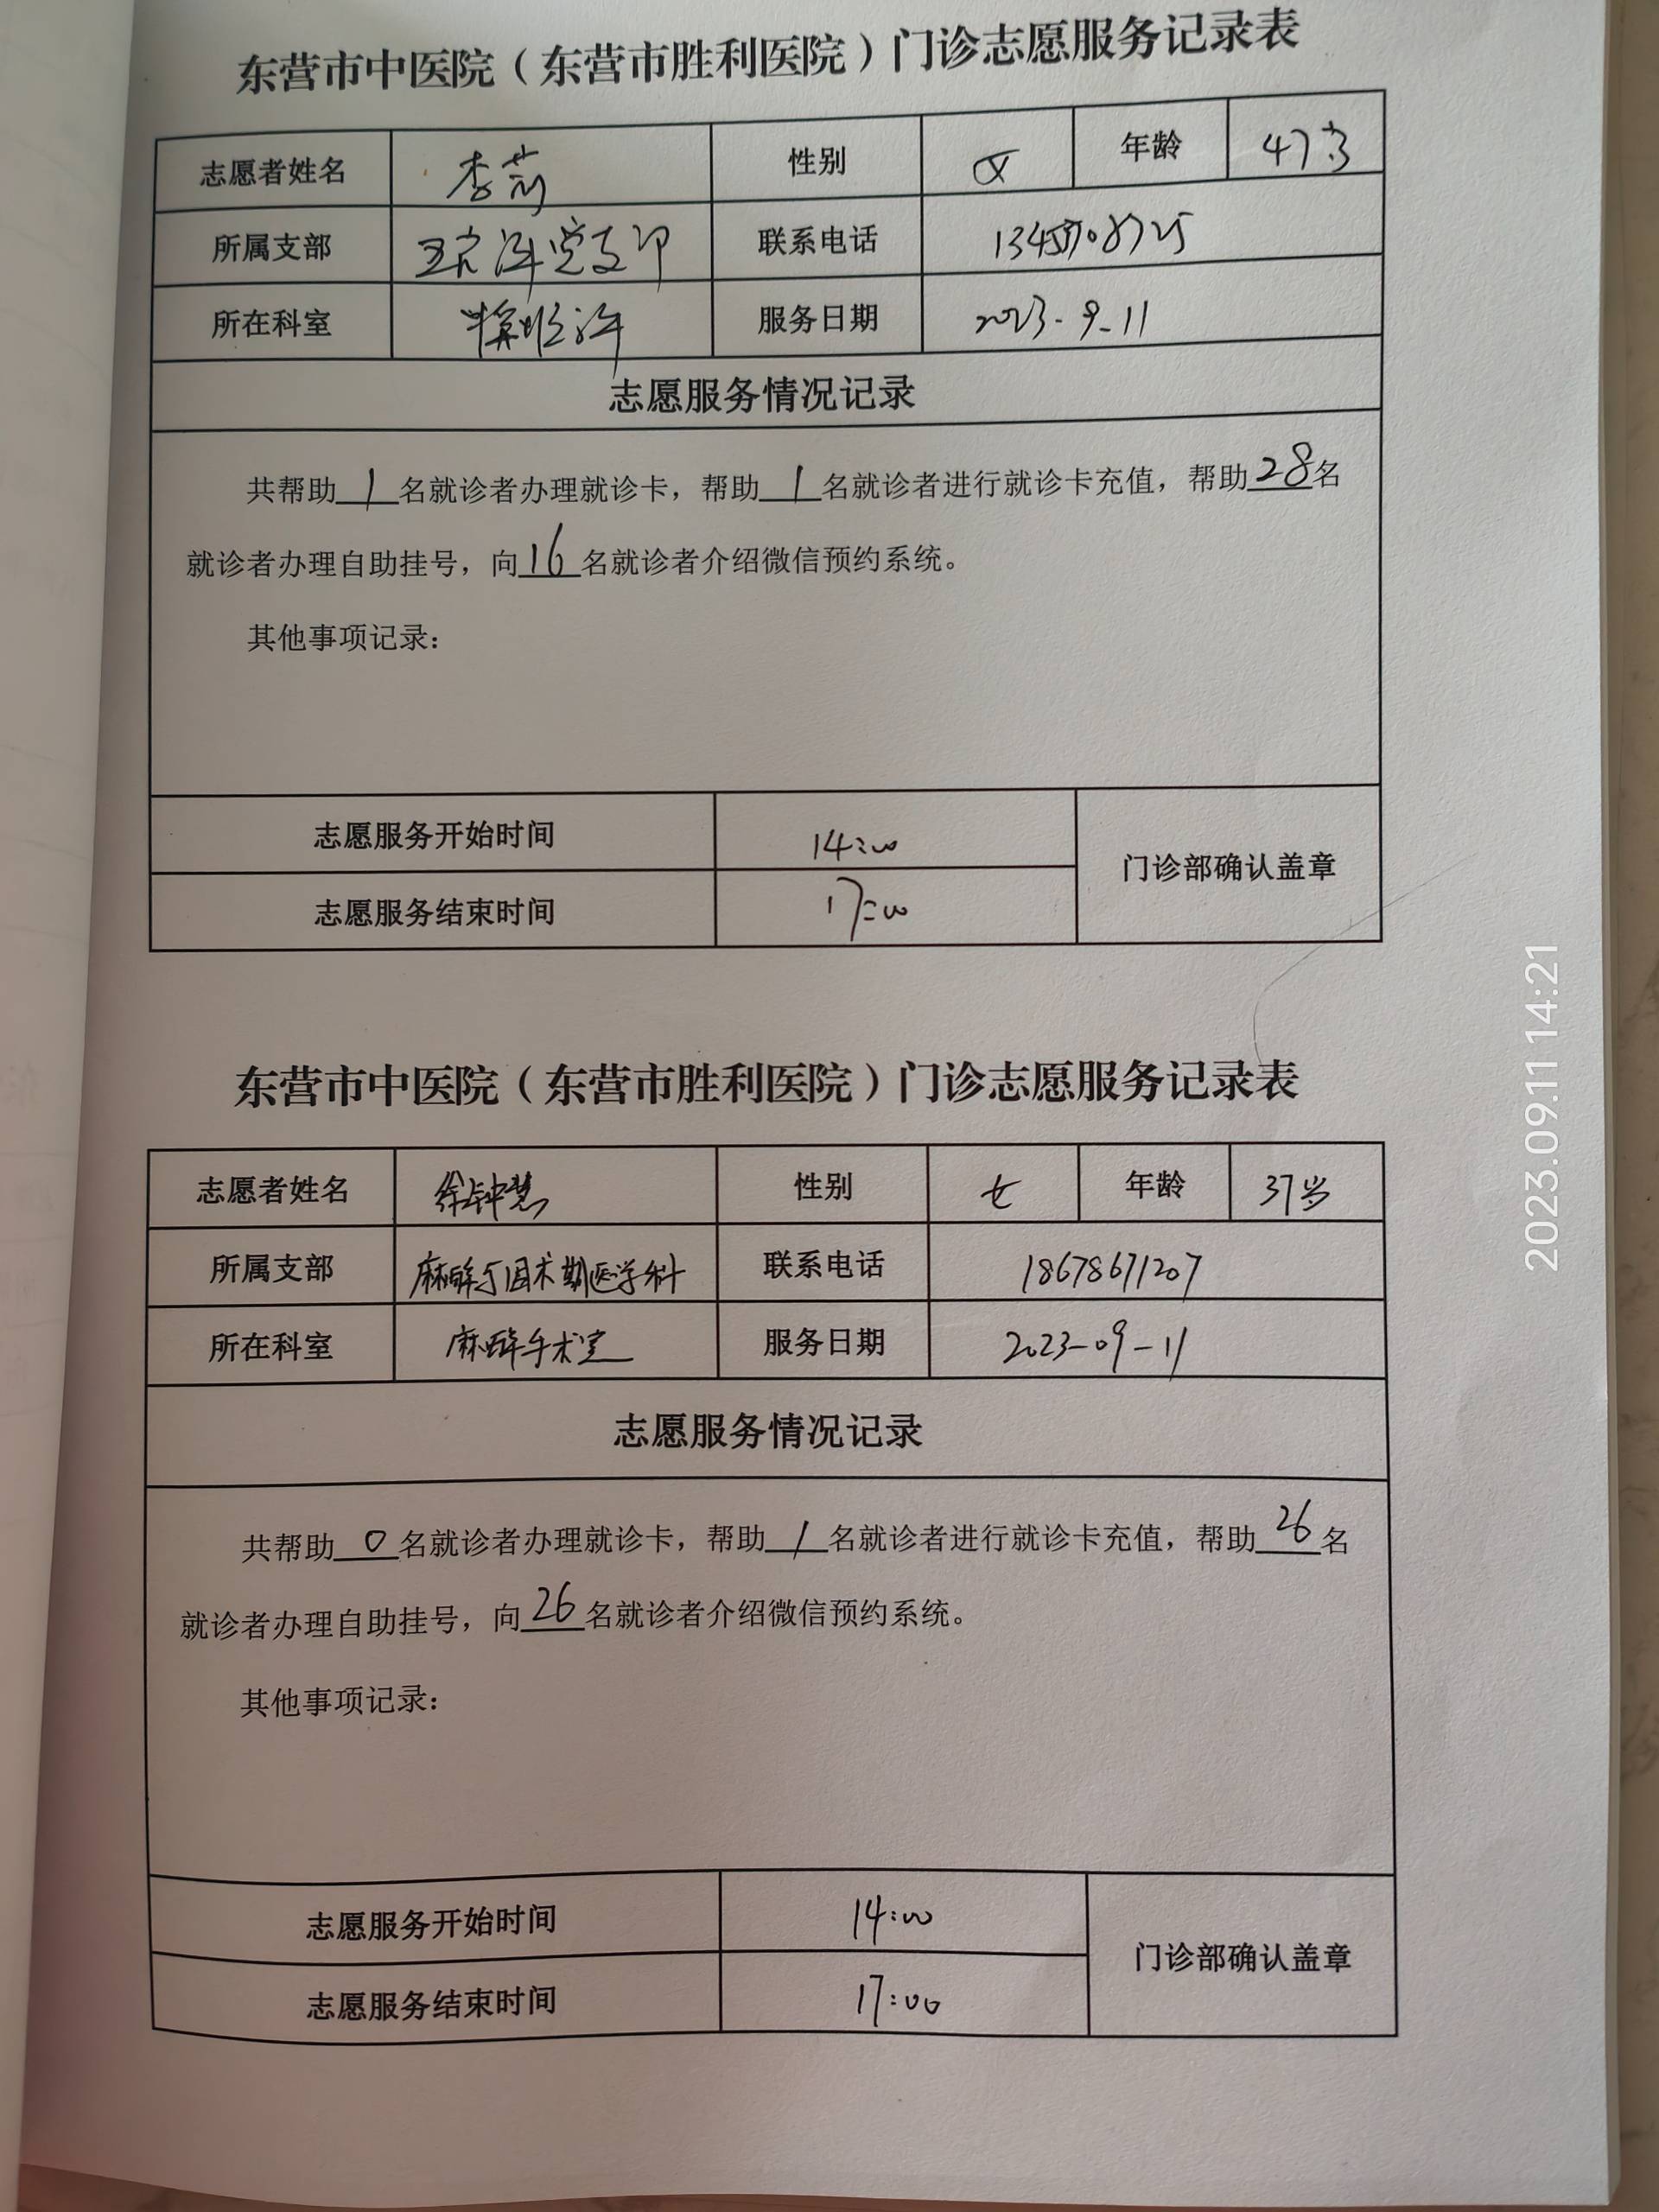 东营市中医院（东营市胜利医院）门诊志愿服务记录表
志愿者姓名 李莉 性别 女 年龄 47岁
所属支部 党支部 联系电话
所在科室 服务日期 2023.9.11
志愿服务情况记录
共帮助1名就诊者办理就诊卡，帮助1名就诊者进行就诊卡充值，帮助28名
就诊者办理自助挂号，向16名就诊者介绍微信预约系统。
其他事项记录：
志愿服务开始时间 14:00 门诊部确认盖章
志愿服务结束时间 17:00
东营市中医院（东营市胜利医院）门诊志愿服务记录表
志愿者姓名 徐钟慧 性别 女 年龄 37岁
所属支部 麻醉与围术期医学科 联系电话 18678671207
所在科室 麻醉手术室 服务日期 2023-09-11
志愿服务情况记录
共帮助0名就诊者办理就诊卡，帮助1名就诊者进行就诊卡充值，帮助26名
就诊者办理自助挂号，向26名就诊者介绍微信预约系统。
其他事项记录：
志愿服务开始时间 14:00 门诊部确认盖章
志愿服务结束时间 17:00
2023.09.11 14:21